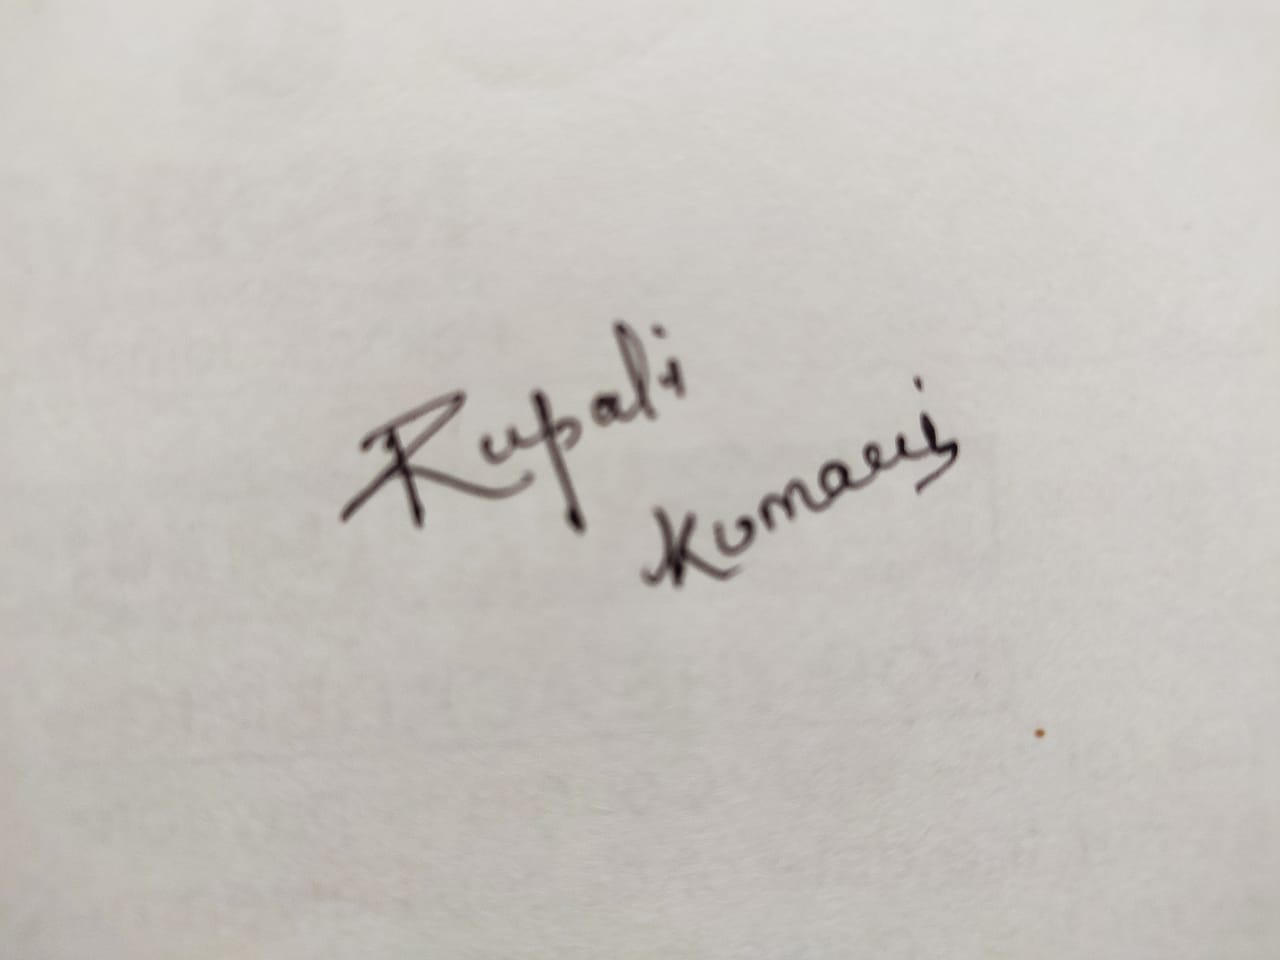 Rupali
Kumari